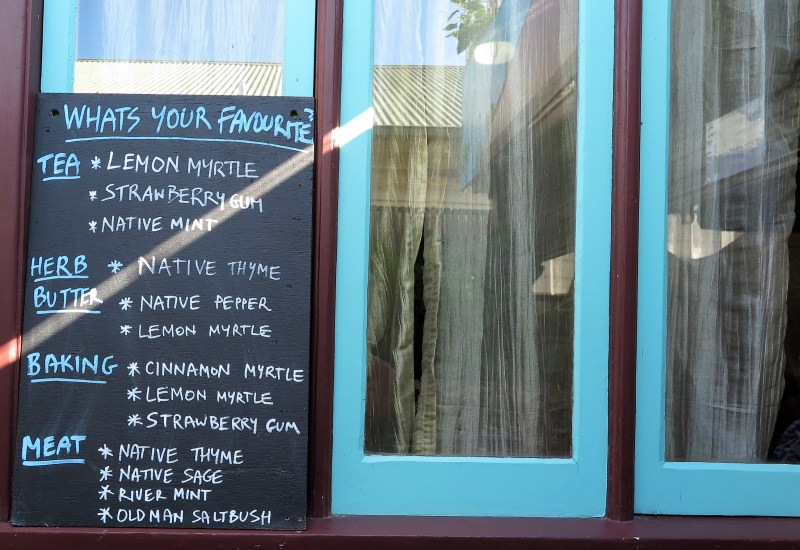 WHATS YOUR FAVOURITE?
TEA * LEMON MYRTLE
* STRAWBERRY GUM
* NATIVE MINT
HERB * NATIVE THYME
BUTTER * NATIVE PEPPER
* LEMON MYRTLE
BAKING * CINNAMON MYRTLE
* LEMON MYRTLE
* STRAWBERRY GUM
MEAT * NATIVE THYME
* NATIVE SAGE
* RIVER MINT
* OLD MAN SALTBUSH